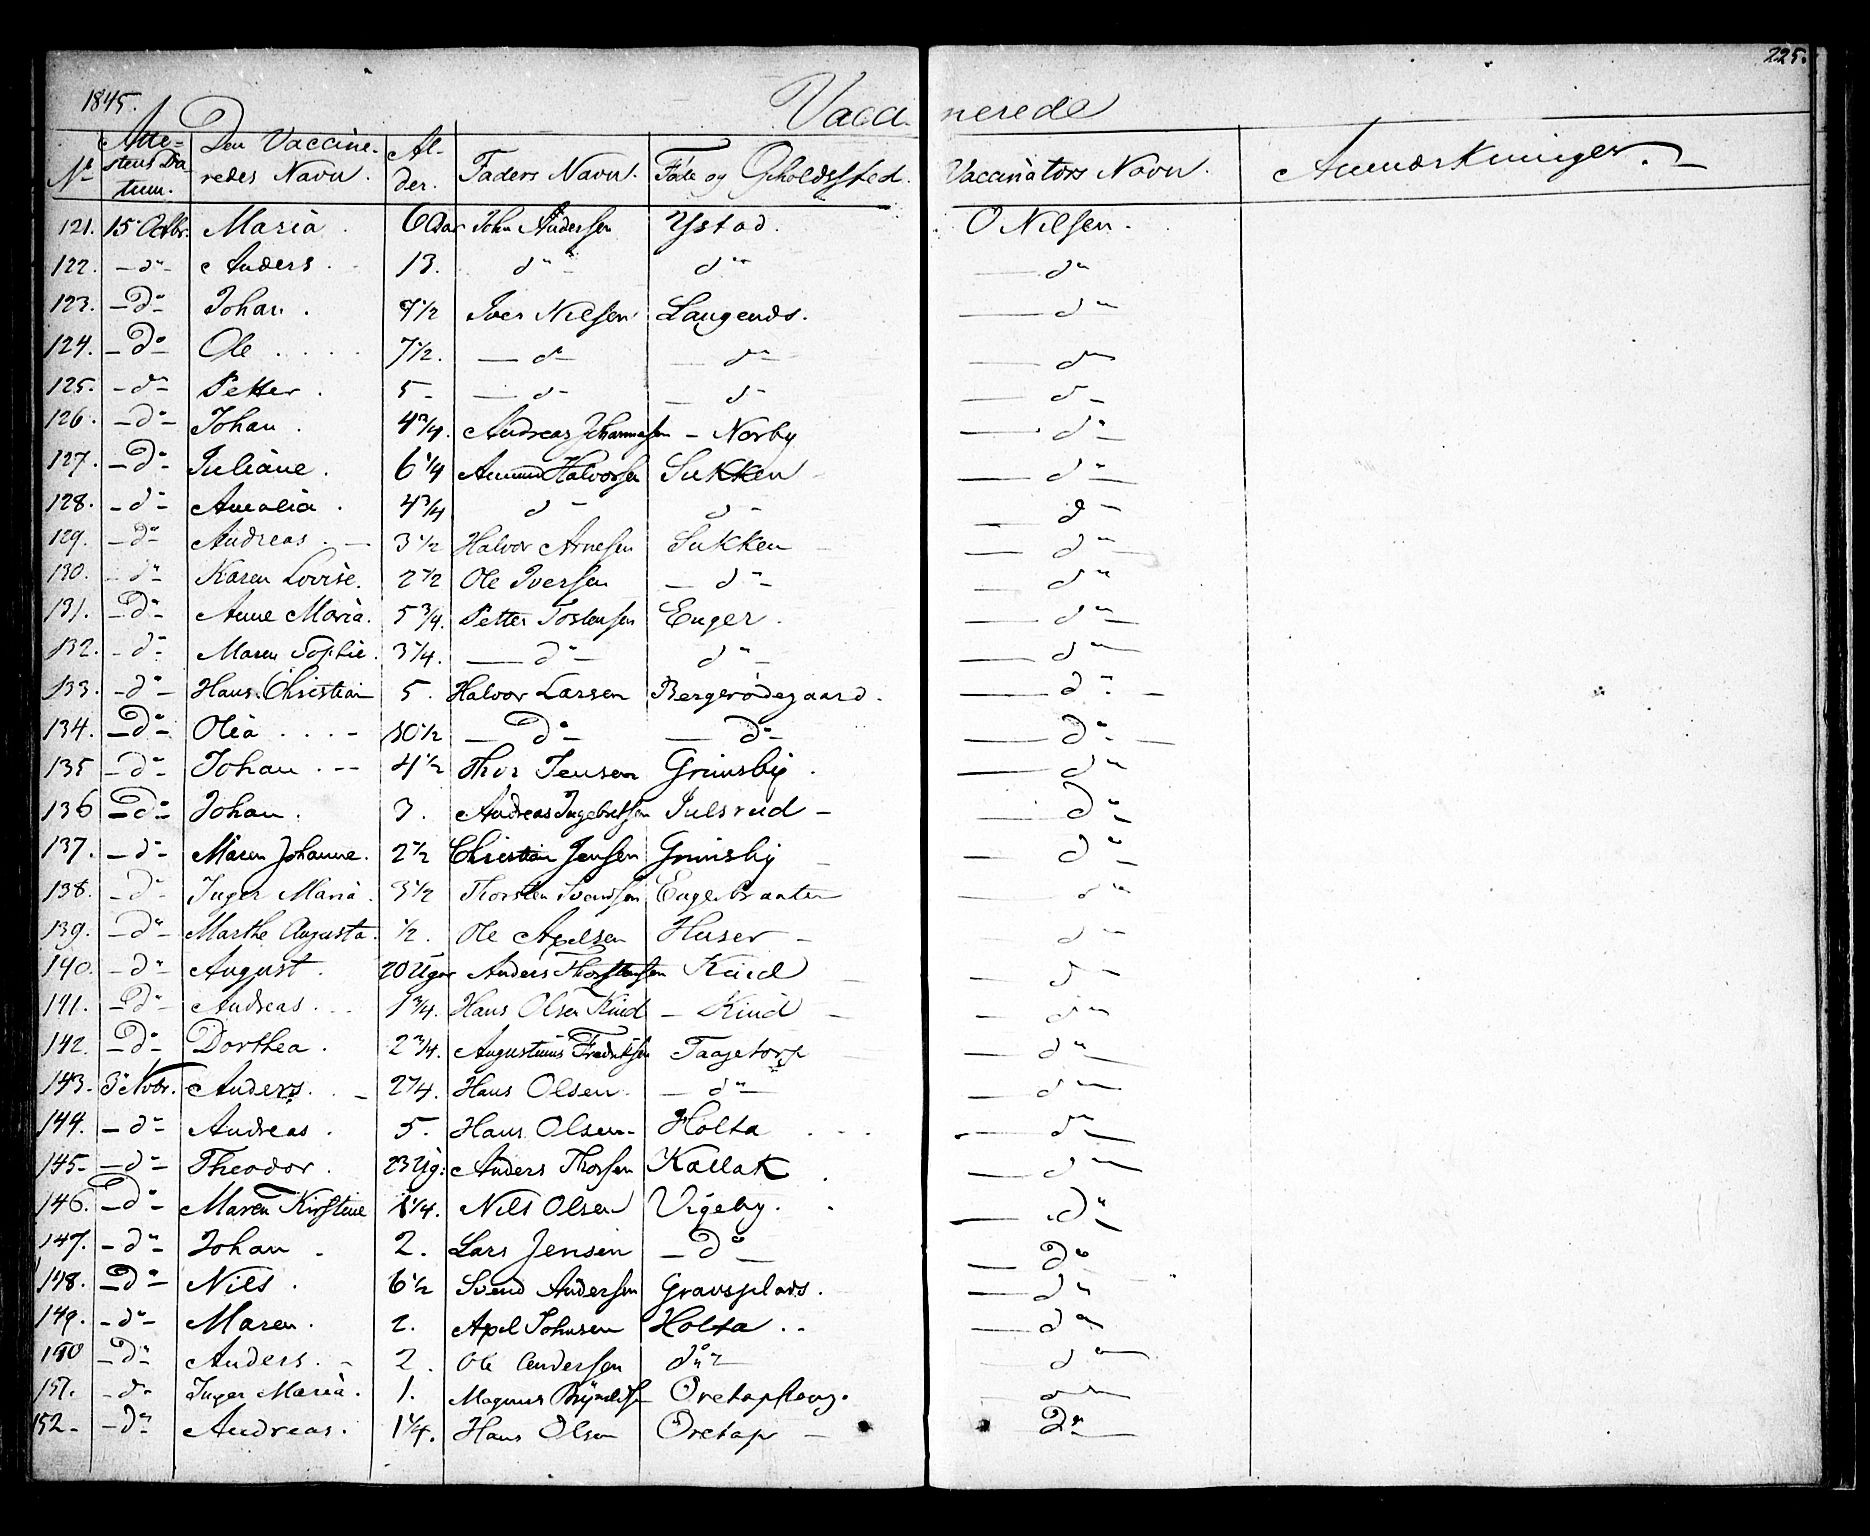 225.
1845. Vaccinerede
No Attestens Datum. Den Vaccineredes Navn. Alder. Faders Navn. Føde og Opholdssted. Vaccinators Navn. Anmærkninger.
121. 15 Octbr. Maria. 6 Aar John Andersen Ystad. O Nilsen.
122. - do - Anders. 13. do do - do
123. - do - Johan. Iver Nilsen Laugends. - do -
124. - do - Ole 7 1/2. - do - - do - - do
125. - do - Petter. 5 - - do - - do - - do -
126. - do - Johan. 4 3/4. Andreas Johannesen - Norby - do -
127. - do - Juliane. 6 1/4 Amund Halvorsen Sukken - do -
128. - do - Amalia. 4 3/4 do - do - - do -
129. - do - Andreas. - 3 1/2 Halvor Arnesen Sukken - do -
130. - do - Karen Lovise. 2 1/2 Ole Iversen - do - - do
131. - do - Anne Maria. 5 3/4. Petter Tostensen Enger. - do -
132. - do - Maren Sophie. 3 1/4. - do - do - - do -
133. - do - Hans Christian 5. Halvor Larsen Bergerødegaard. - do -
134. - do - Olea - 10 1/2 - do - - do - - do -
135 - do - Johan. -- 4 1/2 Thor Jensen Grimsby. - do -
136 - do - Johan. 3. Andreas Ingebretsen Julsrud - - do -
137. - do - Maren Johanne. 2 1/2 Christian Jensen Grimsby - do -
138. - do - Inger Maria. 3 1/2 Thorsten Svendsen Engebraaten - do
139. - do - Marthe Augusta. 1/2. Ole Axelsen Huser - - do -
140. - do - August. 20 Uger Anders Thorstensen Kind - do -
141. - do - Andreas. 1 3/4. Hans Olsen Kind - Kind - do
142. - do - Dorthea. 2 3/4. Augustinus Fredriksen Taagetorp - do -
143. 3 Novbr. Anders. - 2 1/4. Hans Olsen. - do - - do -
144. - do - Andreas. 5. Hans Olsen - Holta - do -
145 - - do - Theodor. 23 Ug: Anders Thorsen Kallak - do -
146. - do - Maren Kirstine 1 1/4. Nils Olsen Vigeby. - do -
147. - do - Johan 2. Lars Jensen - do - - do
148. - do - Nils. 6 1/2 Svend Andersen Gravsplads. - do
149. - do - Maren. 2. Axel Johnsen Holta.. - do
150 - do - Anders. - 2. Ole Andersen do - do -
151. - do - Inger Maria. 1. Magnus - do
152 - - do - Andreas. 1 1/4. Hans Olsen - do -